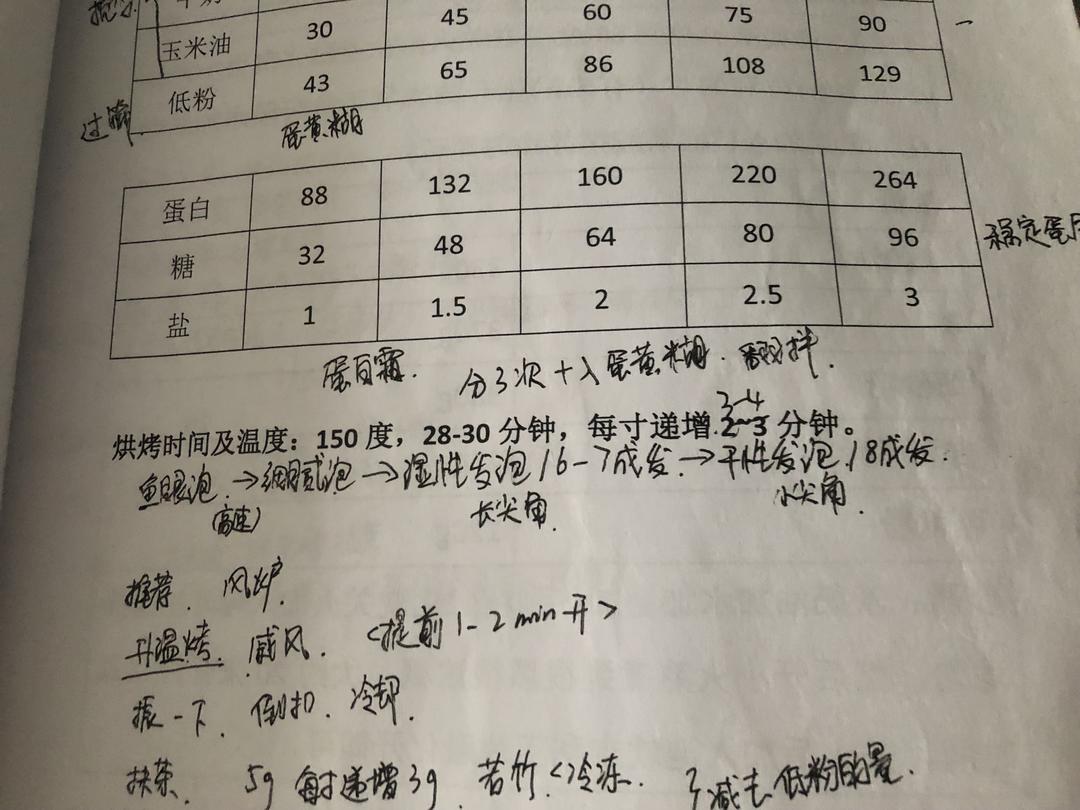 玉米油 30 45 60 75 90
低粉 43 65 86 108 129
过筛
蛋黄糊
蛋白 88 132 160 220 264
糖 32 48 64 80 96
稳定蛋
盐 1 1.5 2 2.5 3
蛋白霜. 分3次+入蛋黄糊.翻拌.
3-4
烘烤时间及温度：150 度，28-30 分钟，每寸递增 2~3 分钟。
鱼眼泡.→细腻泡→湿性发泡/6-7成发.→干性发泡/8成发.
(高速) 长尖角. 小尖角.
推荐. 风炉.
升温烤. 戚风. <提前1-2min开>
振一下. 倒扣. 冷却.
抹茶. 5g 每寸递增3g. 若竹<冷冻. 减去低粉的量.